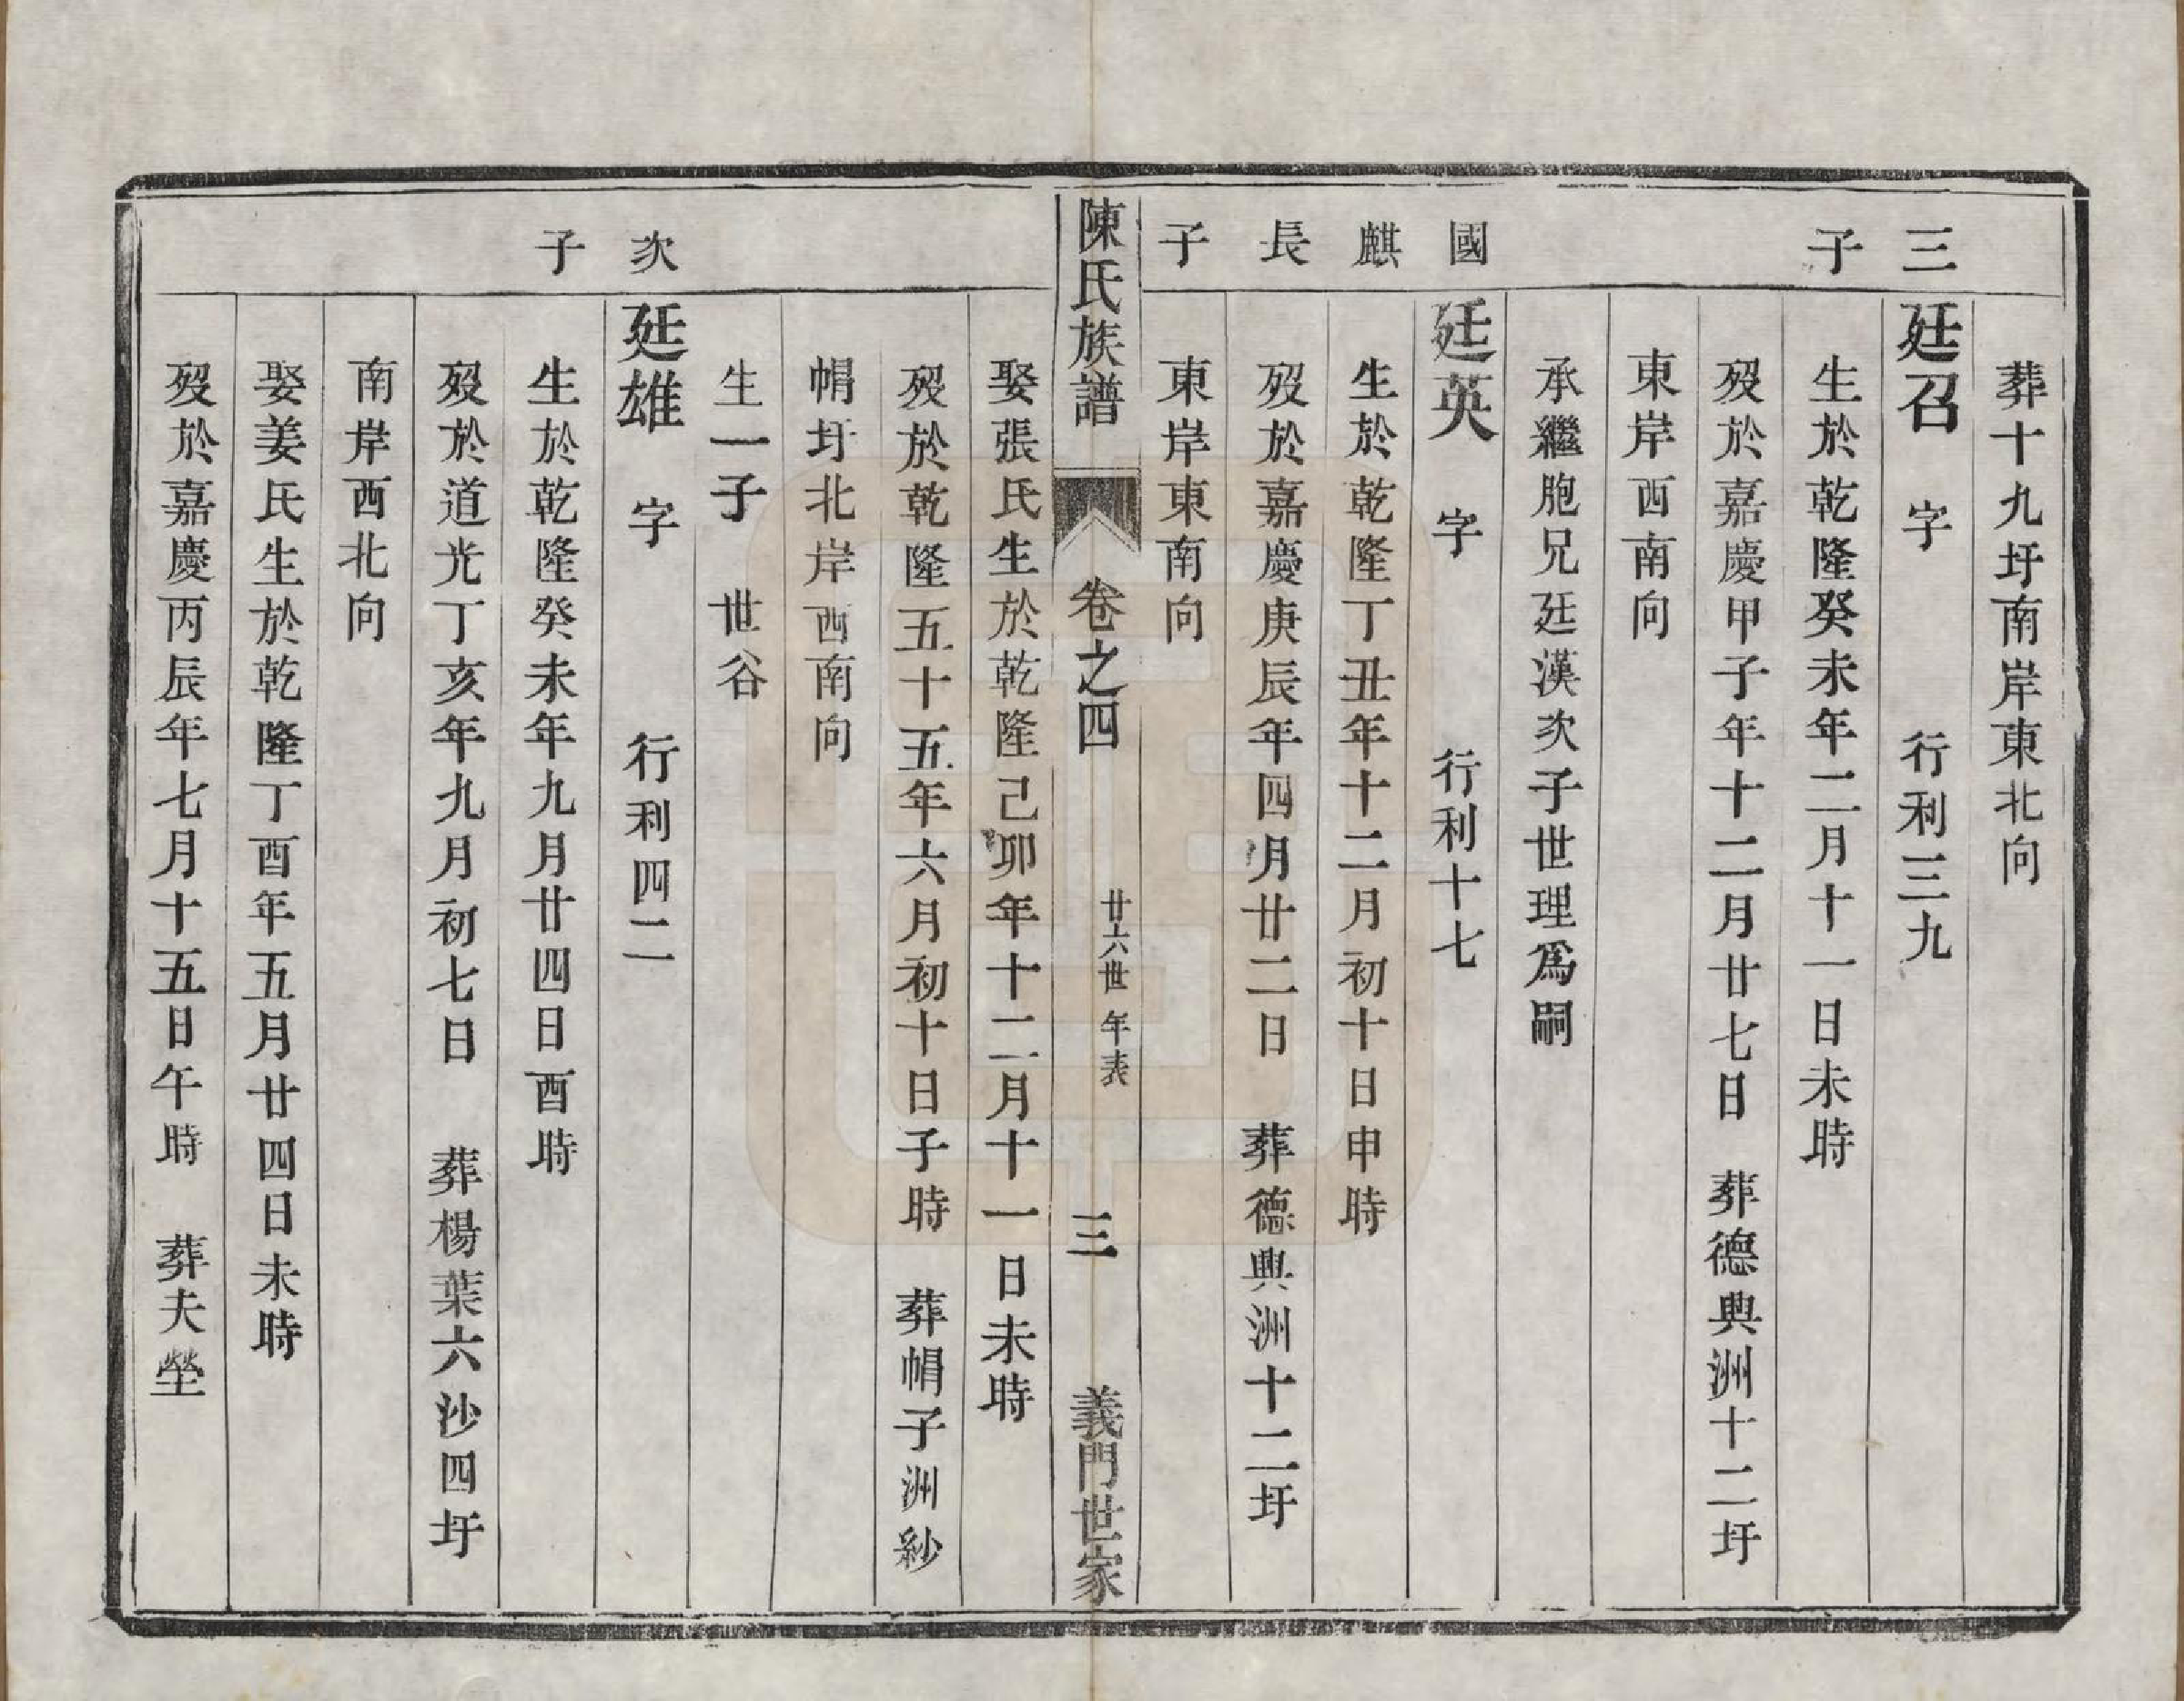 葬十九圩南岸東北向
三子
廷召　字　行利三九
生於乾隆癸未年二月十一日未時
歿於嘉慶甲子年十二月廿七日　葬德興洲十二圩
東岸西南向
承繼胞兄廷漢次子世理爲嗣
國麒長子
廷英　字　行利十七
生於乾隆丁丑年十二月初十日申時
歿於嘉慶庚辰年四月廿二日　葬德興洲十二圩
東岸東南向
陳氏族譜　卷之四　廿六世年表　三　義門世家
娶張氏生於乾隆己卯年十二月十一日未時
歿於乾隆五十五年六月初十日子時　葬帽子洲紗
帽圩北岸西南向
生一子　世谷
次子
廷雄　字　行利四二
生於乾隆癸未年九月廿四日酉時
歿於道光丁亥年九月初七日　葬楊葉六沙四圩
南岸西北向
娶姜氏生於乾隆丁酉年五月廿四日未時
歿於嘉慶丙辰年七月十五日午時　葬夫塋